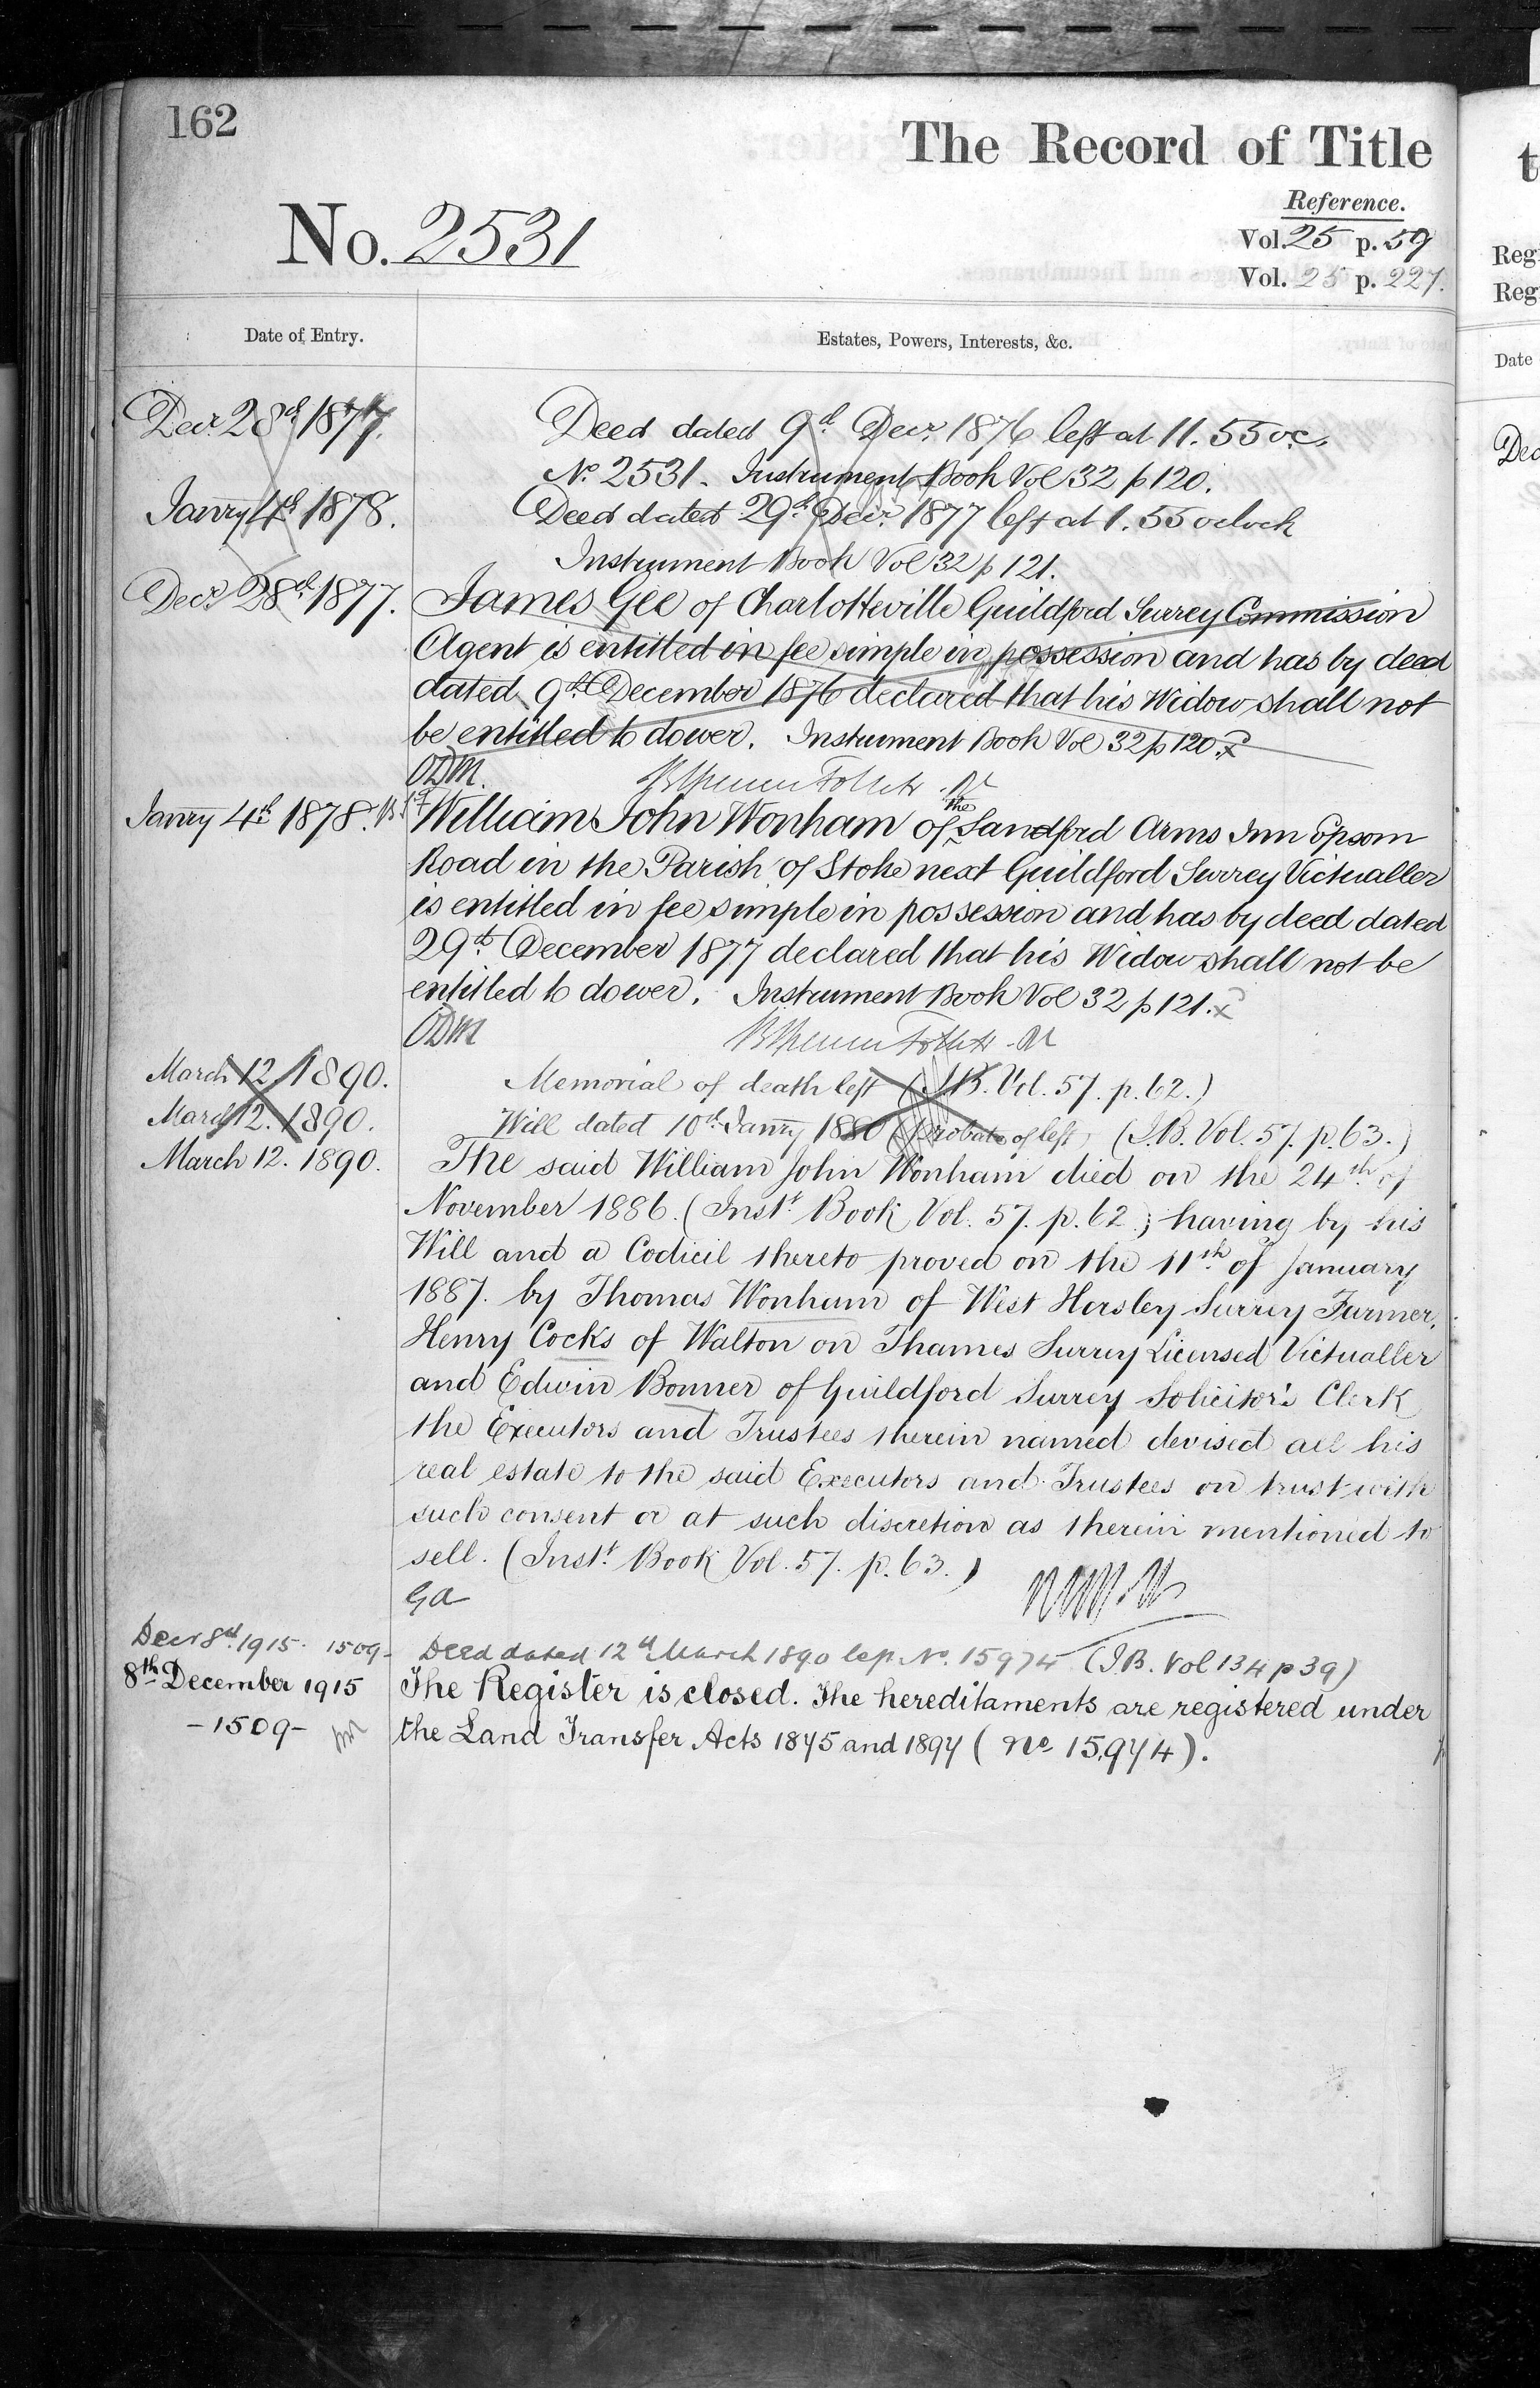 162
The Record of Title
Reference.
No. 2531
Vol. 25 p. 59
Vol. 25 p. 227.
Date of Entry.
Estates, Powers, Interests, &c.
Decr. 28th 1877.
Deed dated 9th Decr. 1876 left at 11.55 oc.
No. 2531. Instrument Book Vol 32 p 120.
Janry 4th 1878.
Deed dated 29th Decr. 1877 left at 1.55 oclock
Instrument Book Vol 32 p 121.
Decr. 28th 1877.
James Gee of Charlotteville Guildford Surrey Commission
Agent is entitled in fee simple in possession and has by deed
dated 9th December 1876 declared that his Widow shall not
be entitled to dower. Instrument Book Vol 32 p 120.
ODM
Janry 4th 1878.
William John Wonham of the Sandford Arms Inn Epsom
Road in the Parish of Stoke next Guildford Surrey Victualler
is entitled in fee simple in possession and has by deed dated
29th December 1877 declared that his Widow shall not be
entitled to dower. Instrument Book Vol 32 p 121.
ODM
March 12. 1890.
Memorial of death left (I.B. Vol. 57. p. 62.)
March 12. 1890.
Will dated 10th Janry 1880 (Probate of left) (I.B. Vol. 57. p. 63.)
March 12. 1890.
The said William John Wonham died on the 24th of
November 1886. (Inst. Book Vol. 57. p. 62); having by his
Will and a Codicil thereto proved on the 11th of January
1887. by Thomas Wonham of West Horsley Surrey Farmer,
Henry Cocks of Walton on Thames Surrey Licensed Victualler
and Edwin Bonner of Guildford Surrey Solicitor's Clerk
the Executors and Trustees therein named devised all his
real estate to the said Executors and Trustees on trust with
such consent or at such discretion as therein mentioned to
sell. (Inst. Book Vol. 57. p. 63.)
GA
Decr 8th 1915. 1509-
Deed dated 12th March 1890 No. 15974 (I.B. Vol 134 p 39)
8th December 1915
The Register is closed. The hereditaments are registered under
-1509-
the Land Transfer Acts 1875 and 1897 (No 15,974).
t
Reg
Reg
Date
Dec